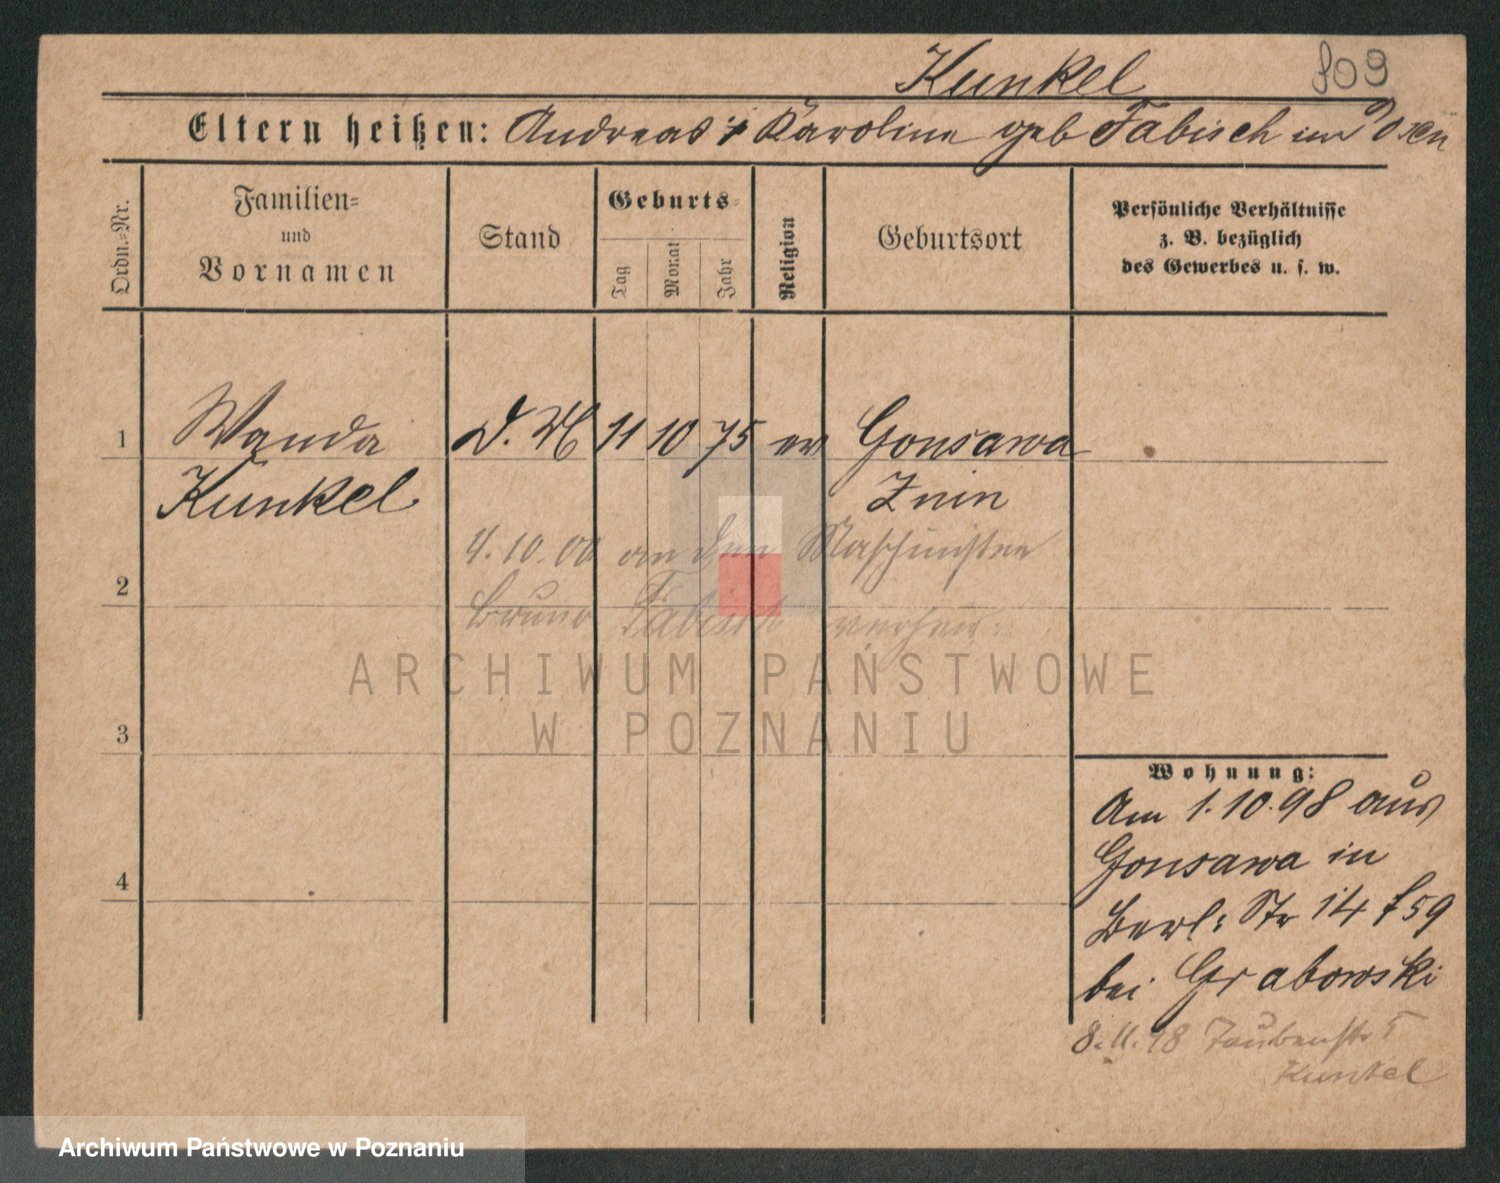 Kunkel
809
Eltern heißen: Andreas Karoline geb Fabisch in
Ordn.-Nr.
Familien-
und
Vornamen
Stand
Geburts-
Tag
Monat
Jahr
Religion
Geburtsort
Persönliche Verhältnisse
z. B. bezüglich
des Gewerbes u. s. w.
1 Wanda D. M 11 10 75 ev Gonsawa
Kunkel Znin
4.10.00 an den Maschinisten
2
Bruno Fabisch verheir.
ARCHIWUM PAŃSTWOWE
W POZNANIU
3
Wohnung:
Am 1.10.98 aus
Gonsawa in
4
Berl. Str 14 f 59
bei Grabowski
8.11.98 Taubenstr 5
Kunkel
Archiwum Państwowe w Poznaniu